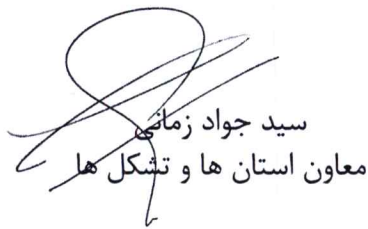 سید جواد زمانی
معاون استان ها و تشکل ها